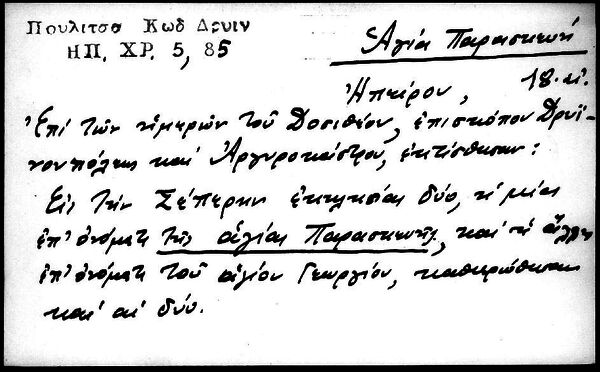 Πουλιτσα Κωδ Δρυιν
ΗΠ. ΧΡ. 5, 85
Ἁγία Παρασκευή
Ἠπείρου, 18. αἰ.
Ἐπί τῶν ἡμερῶν τοῦ Δοσιθέου, ἐπισκόπου Δρυϊ-
νουπόλεως καί Ἀργυροκάστρου, ἐκτίσθησαν:
Εἰς τήν Σέπερην ἐκκλησίαι δύο, ἡ μία
ἐπ' ὀνόματι τῆς ἁγίας Παρασκευῆς, καί ἡ ἄλλη
ἐπ' ὀνόματι τοῦ ἁγίου Γεωργίου, καθιερώθησαν
καί αἱ δύο.